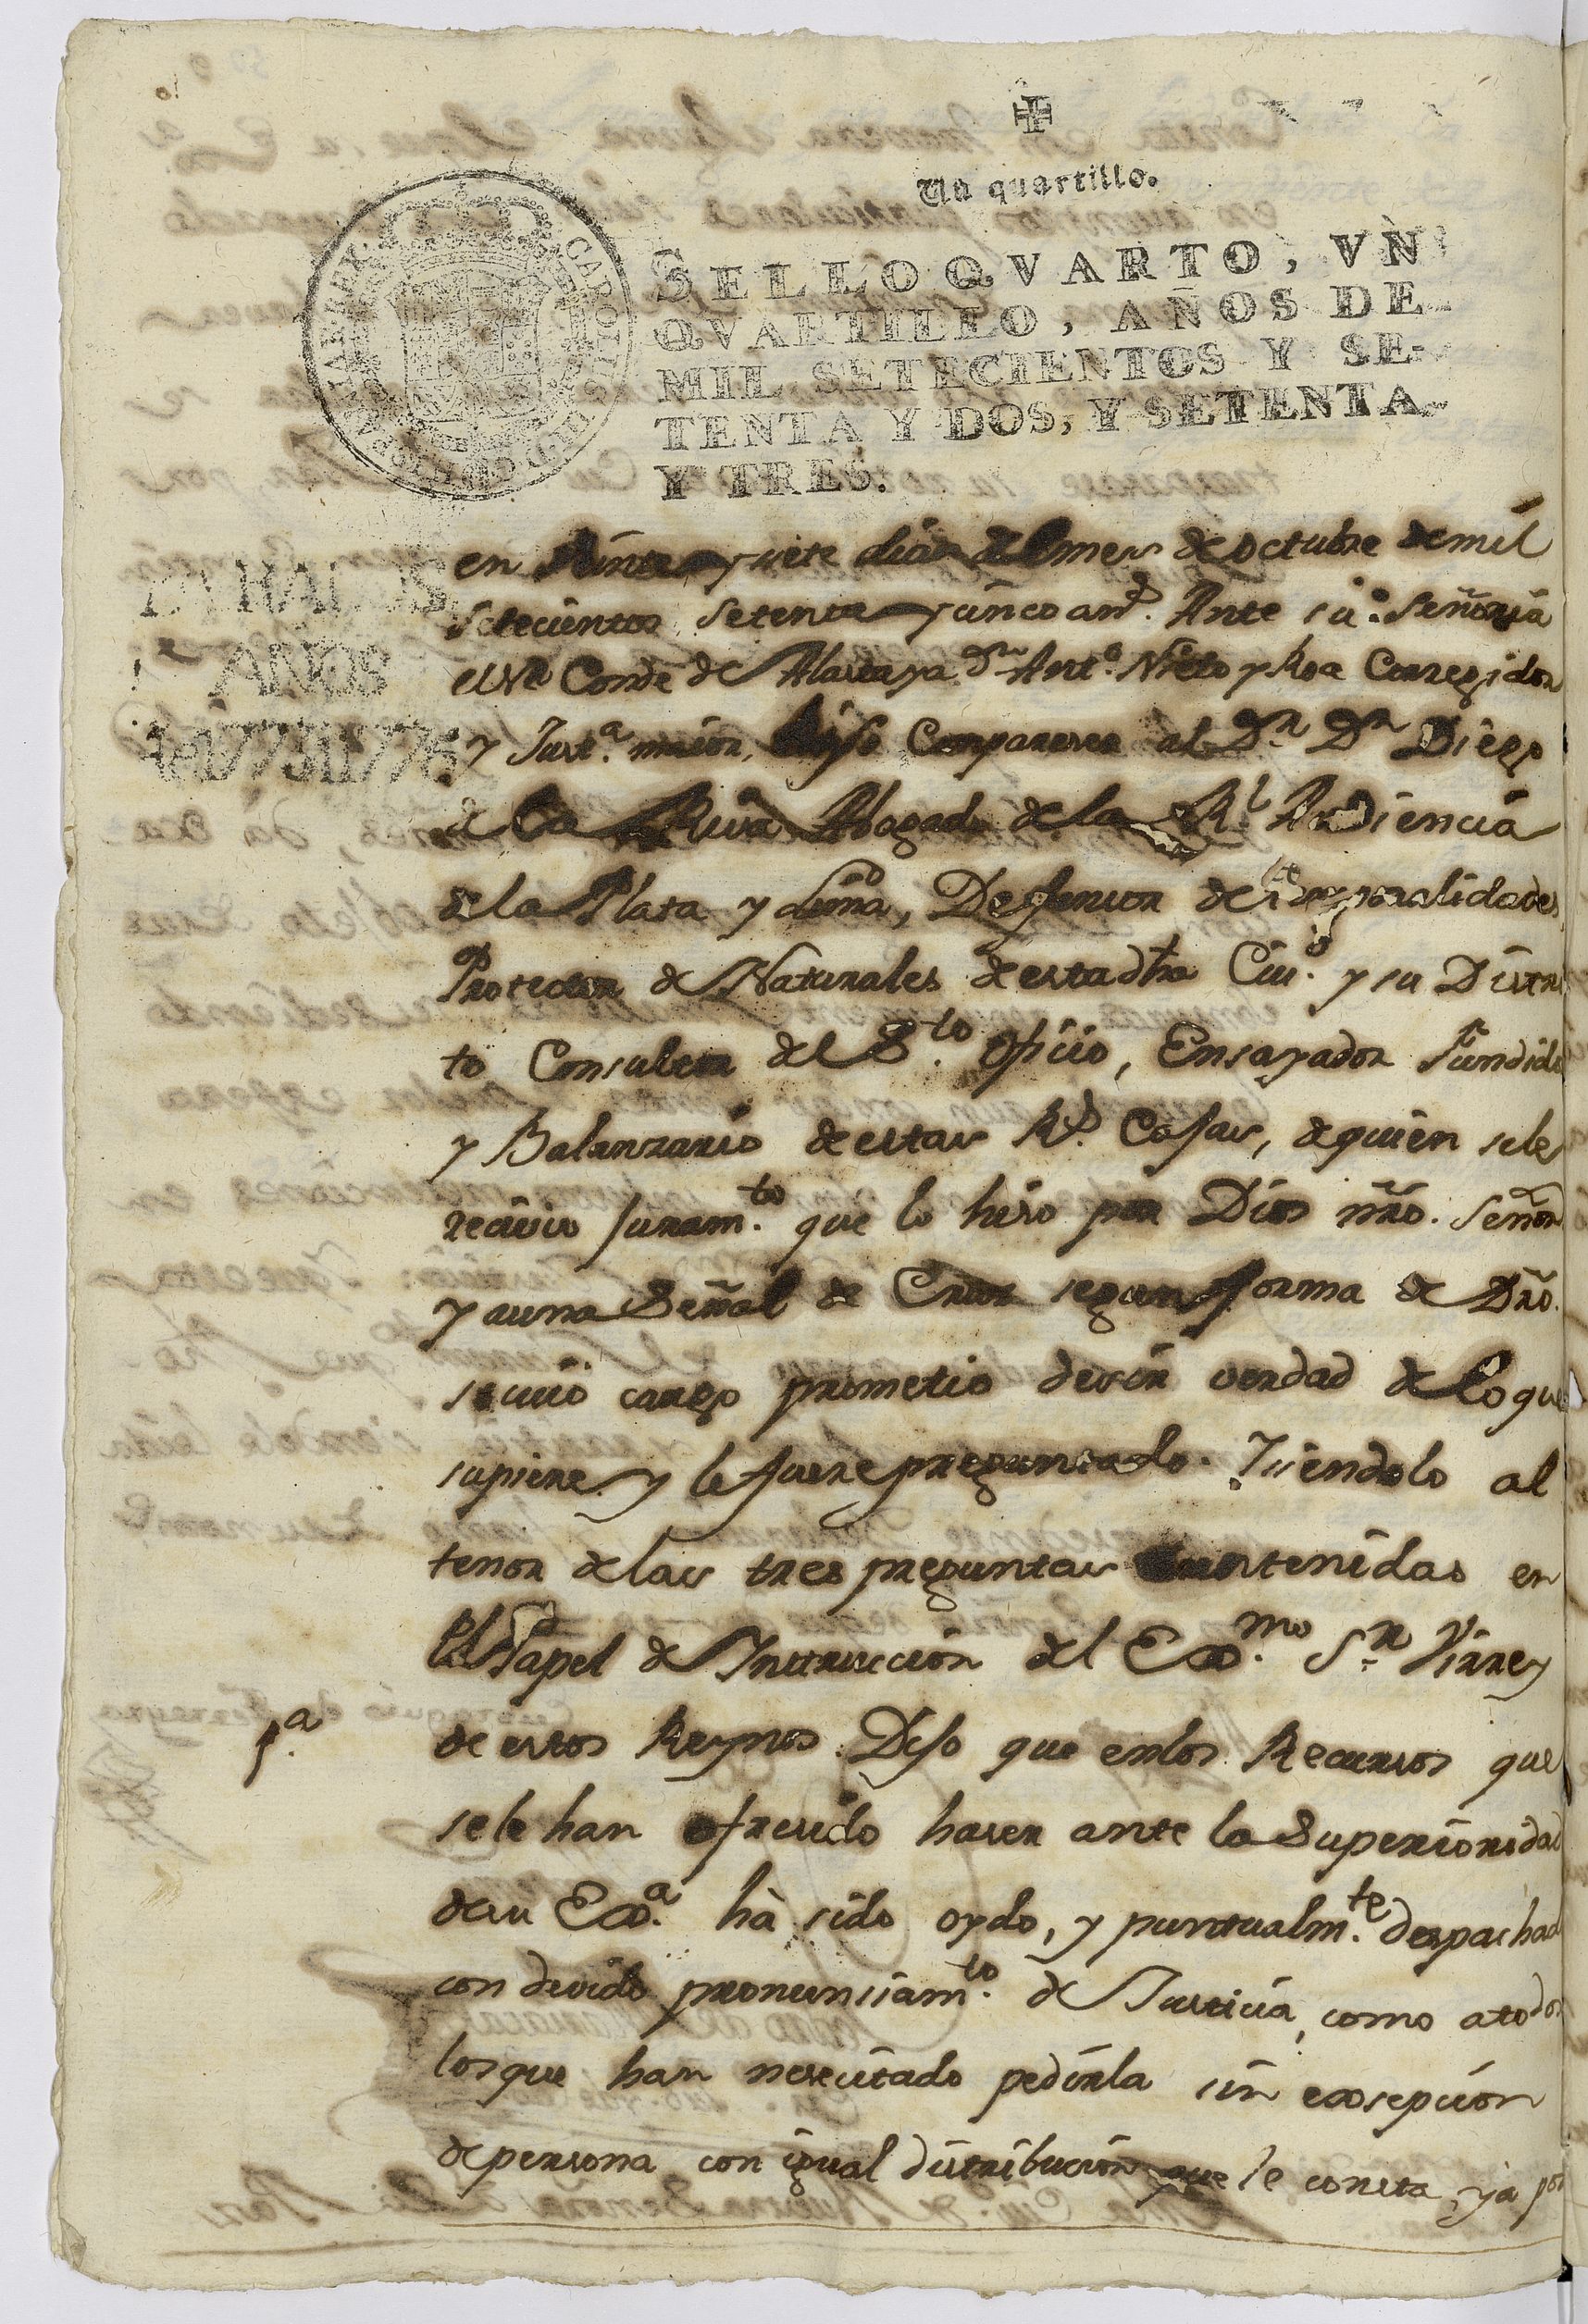 Un quartillo.
SELLO QVARTO, VN
QVARTILLO, AÑOS DE
MIL SETECIENTOS Y SE-
TENTA Y DOS, Y SETENTA
Y TRES.
AÑOS
en Veinte y siete dias del mes de octubre de mil
setecientos setenta y cinco ans. Ante su Señoria
el Sr. Conde de Alastaya Dn. Anto. Nieto y Roa Corregidor
y Justa. maior, hiso Compareser al Dr. Dn Diego
de la Riva Abogado de la Rl. Audiencia
de la Plata y Lima, Defensor de temporalidades
Protector de Naturales de esta dha Ciud. y su Distri
to Consultor del Sto. oficio, Ensayador fundido
y Balanzario de estas Rs. Cajas, de quien se le
recivio Juramto. que lo hiso por Dios nro. Señor
y a una Señal de Cruz segun forma de Dro.
so cuio cargo prometio desir verdad de lo que
supiere y le fuere preguntado. Y siendolo al
tenor de las tres preguntas contenidas en
el Papel de Instruccion del Exmo. Sr. Virrey
1a. de estos Reynos. Dijo que en los Recursos que
se le han ofresido haser ante la Superioridad
de su Exa. hà sido oydo, y puntualmte. despachad
con devido pronunsiamto. de Justicia, como a todos
los que han nesecitado pedirla sin exsepcion
de persona con igual distribucion que le consta, ya por